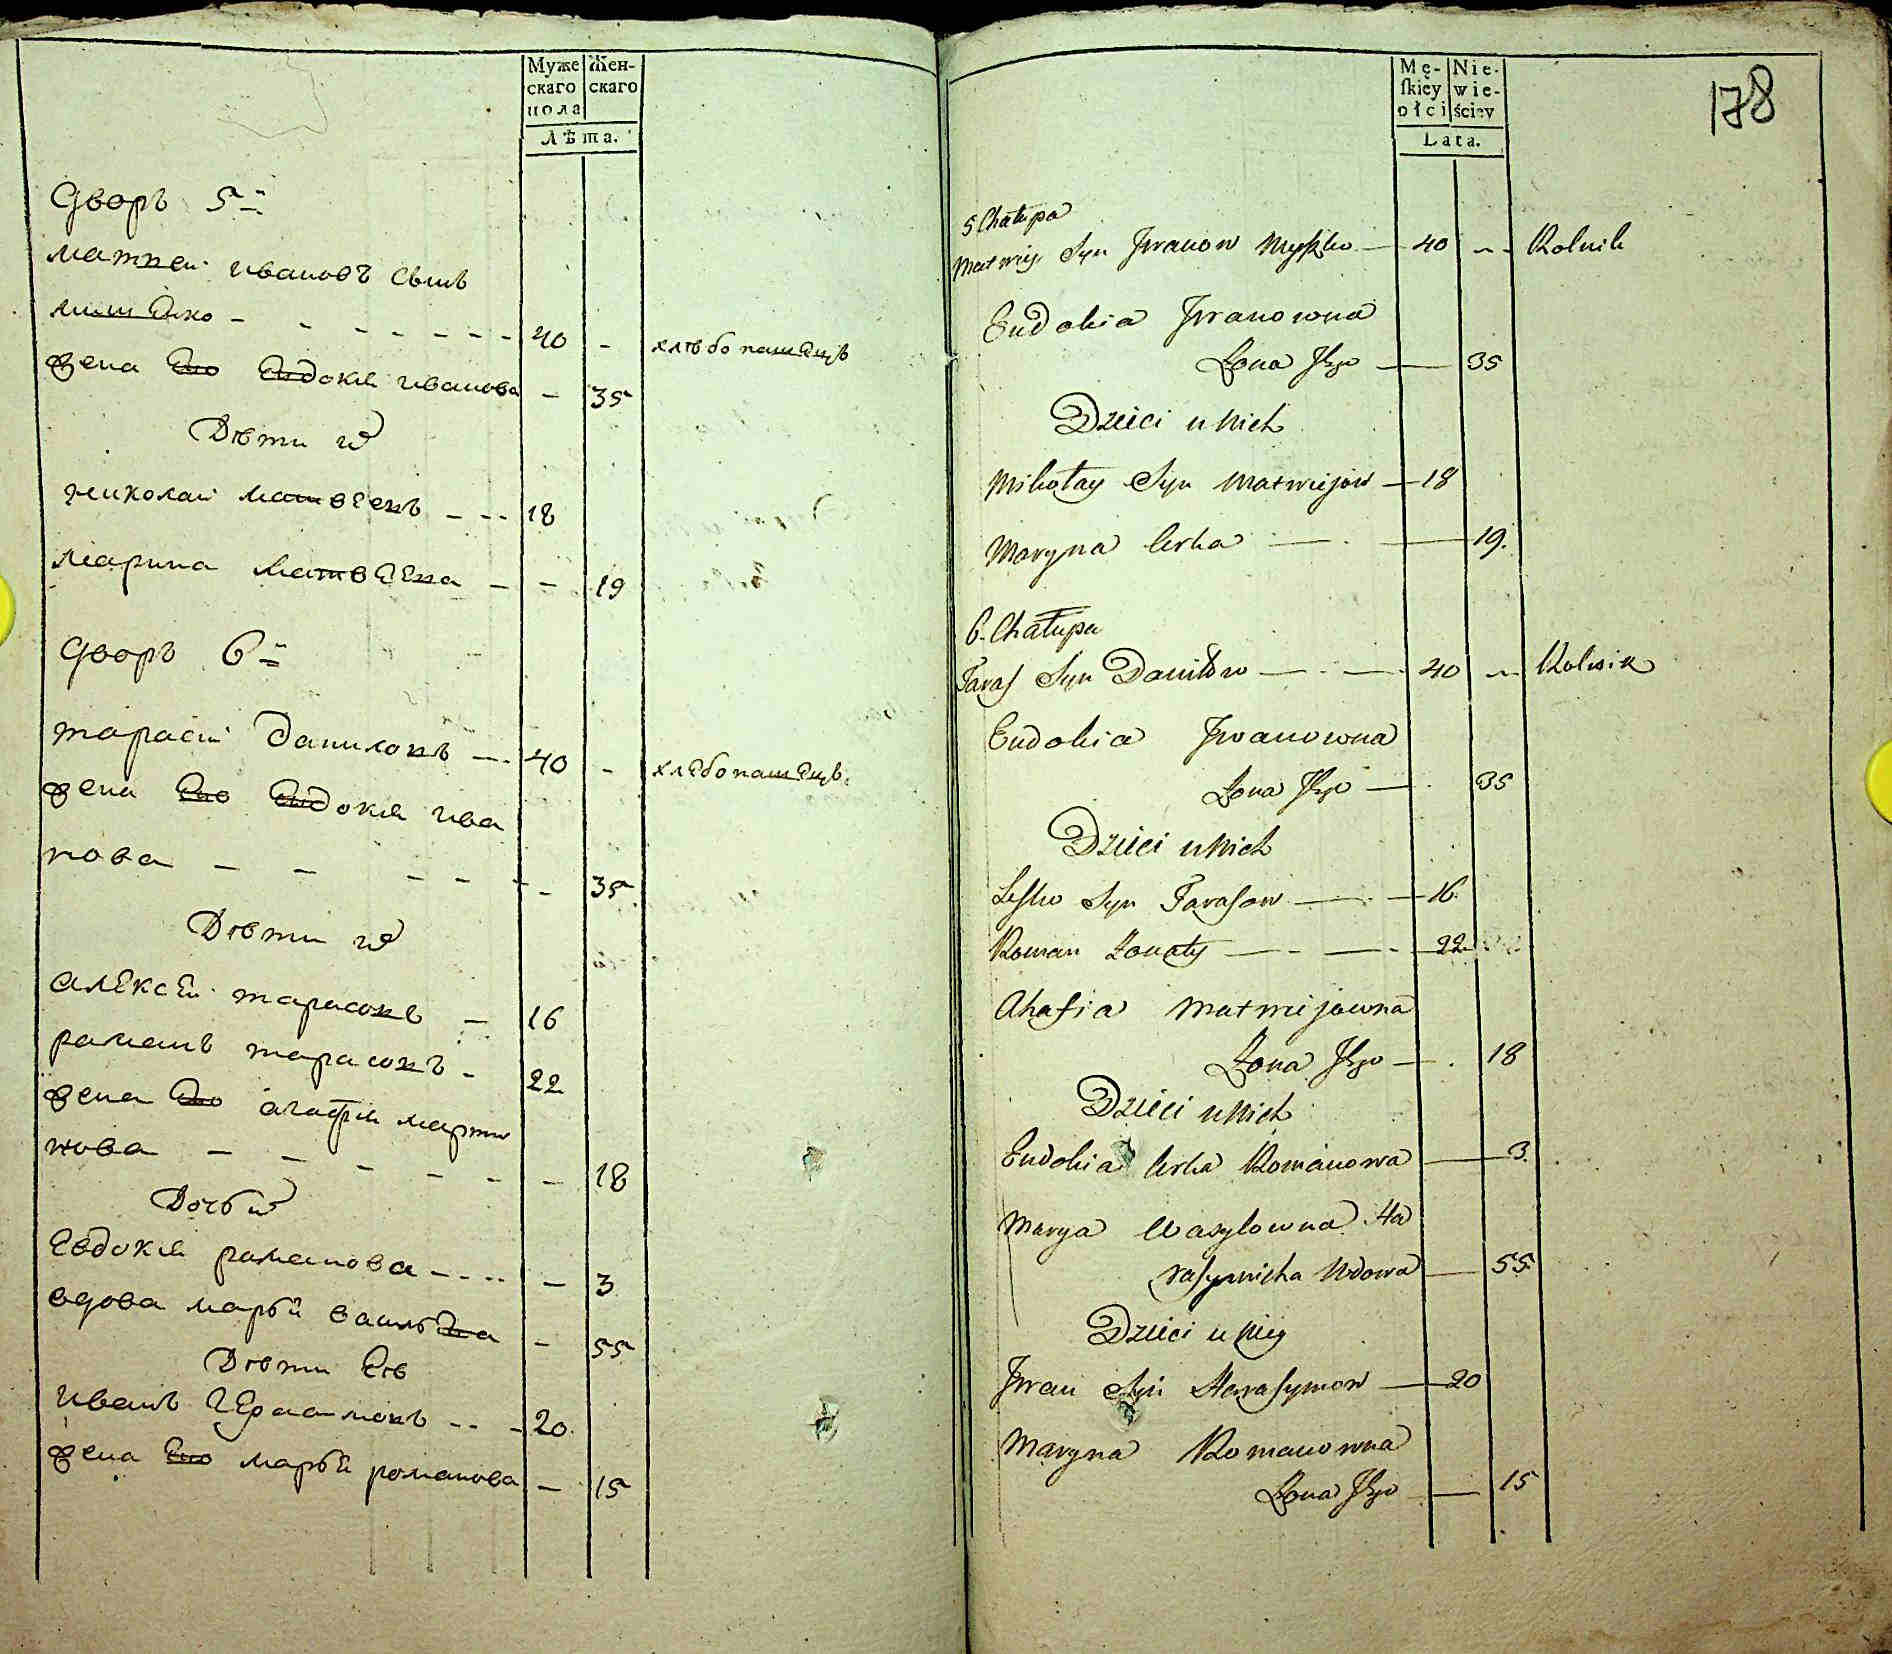 Муже
скаго
пола
Жен-
скаго
Лѣта.
Дворъ 5й
матвей ивановъ сынъ
мишенко - - - - - - - 40 - хлѣбопашецъ
жена Ево Евдокія иванова - 35
Дѣти ихъ
николай матвеевъ - - - 18
марина матвеева - - 19
Дворъ 6й
тарасъ даниловъ - - 40 - хлебопашецъ
жена Ево Евдокія ива
нова - - - - - - 35
Дѣти ихъ
алексей тарасовъ - 16
раманъ тарасовъ - 22
жена Ево агафія марти
нова - - - - - - 18
Дочь ихъ
Евдокія раманова - - - - - 3
вдова марья васильева - 55
Дѣти Еѣ
иванъ Герасимовъ - - - 20
жена Ево марья романова - 15
Mę-
ſkiey
płci
Nie-
wie-
ściey
Lata.
178
5 Chałupa
Matwiy Syn Jwanow Myszko — 40 — Rolnik
Eudokia Jwanowna
Żona Jego — 35
Dzieci u Nich
Mikołay Syn Matwiejow — 18
Maryna Corka — — 19.
6. Chałupa
Taras Syn Daniłow — — 40 — Rolnik
Eudokia Jwanowna
Żona Jego — 35
Dzieci u Nich
Leſko Syn Taraſow — — 16.
Roman Żonaty — — 22
Ahafia Matwiejowna
Żona Jego — 18
Dzieci u Nich
Eudokia Corka Romanowa — 3.
Marya Wasylowna Ha
raſymicha Wdowa — 55
Dzieci u Niey
Jwan Syn Haraſymow — 20
Maryna Romanowna
Żona Jego — 15